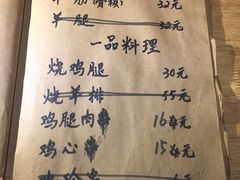 羊腿 32元
一品料理
烧鸡腿 30元
烧羊排 55元
鸡腿肉 16元
鸡心 15元